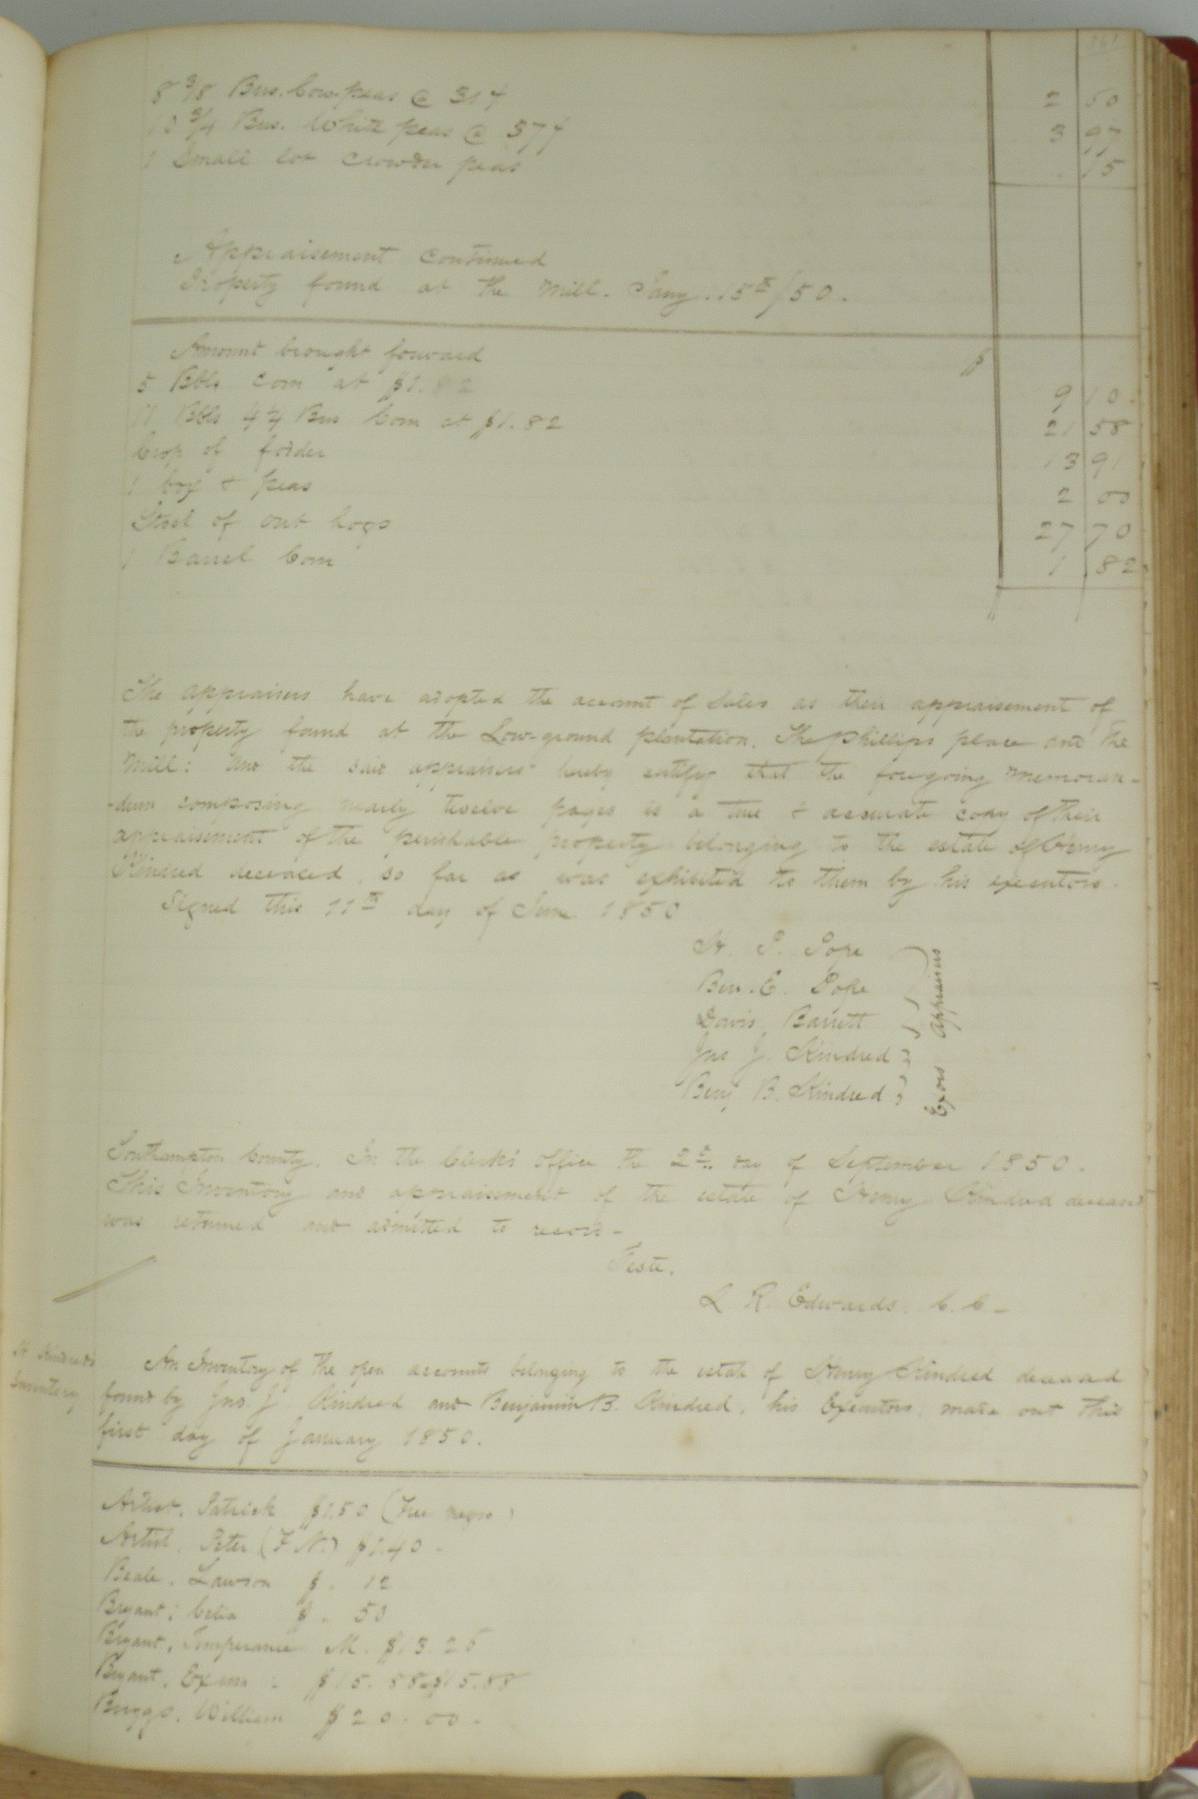 8 3/8 Bus. Cow peas @ 31¢ 2 50
3/4 Bus. White peas @ 37¢ 3 97
1 Small lot Crowder peas 15
Appraisement continued
Property found at the Mill. Jany. 15th/50.
Amount brought forward $
5 Bbls Corn at $1.82 9 10
11 Bbls 4¼ Bus Corn at $1.82 21 58
Crop of fodder 13 91
1 & peas 2 00
Stock of out hogs 27 70
1 Barrel Corn 1 .82
The appraisers have adopted the account of Sales as their appraisement of
the property found at the Low-ground plantation, The Phillips place and the
Mill: And the said appraisers hereby certify that the foregoing memoran-
-dum composing nearly twelve pages is a true & accurate copy of their
appraisement of the perishable property belonging to the estate of Henry
Kindred deceased, so far as was exhibited to them by his executors.
Signed this 11th day of June 1850
H. P. Pope
Ben. E. Pope
Davis Barrett
Appraisers
Jno J. Kindred
Benj B. Kindred
Exors
Southampton County. In the Clerk's office the 2d. day of September 1850.
This Inventory and appraisement of the estate of Henry Kindred deceased
was returned and admitted to record-
Teste,
L. R. Edwards. C. C-
H Kindred's
Inventory
An Inventory of the open accounts belonging to the estate of Henry Kindred deceased
found by Jno. J Kindred and Benjamin B. Kindred, his Executors, made out this
first day of January 1850.
Artist, Patrick $1.50 (Free negro)
Artist, Peter (F. N.) $1.40-
Beale, Lawson $. 12
Bryant; Celia $. 50
Bryant, Temperance M. $13.25
Bryant, Exum: $15.88 $15.88
Buggs, William $20.00-